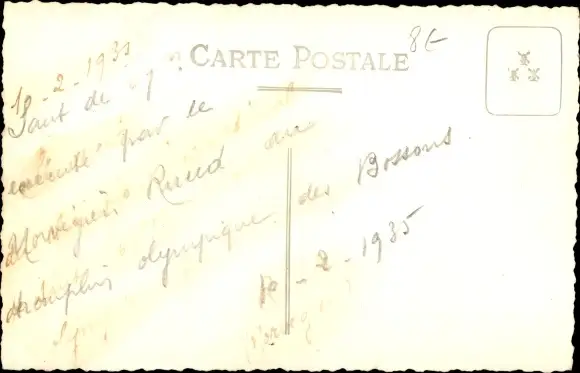 CARTE POSTALE
8E
10-2-1935
Saut de
exécuté par le
Norvégien Ruud au
tremplin olympique des Bossons.
10-2-1935